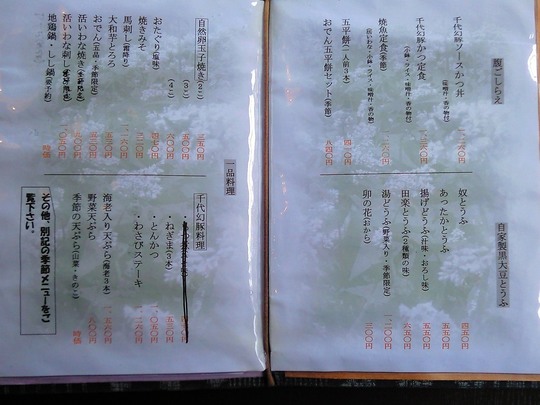 腹ごしらえ
千代幻豚ソースかつ丼 一、二六〇円
(味噌汁・香の物付)
千代幻豚かつ定食 一、二六〇円
(小鉢・ライス・味噌汁・香の物付)
焼魚定食(季節)
(小鉢・ライス・味噌汁・香の物付)
五平餅(一人前3本) 四二〇円
おでん五平餅セット(季節) 八四〇円
自家製黒大豆とうふ
奴とうふ 四五〇円
あったかとうふ 五五〇円
揚げどうふ(甘味・おろし味) 五五〇円
田楽とうふ(2種類の味) 六五〇円
湯どうふ(野菜入り・季節限定) 一、二〇〇円
卯の花(おから) 三〇〇円
一品料理
自然卵玉子焼き(2こ) 三五〇円
(3こ) 五〇〇円
(4こ) 六〇〇円
おたぐり(塩味) 四七〇円
焼きみそ 三二〇円
馬刺し(霜降り)
大和芋とろろ 五三〇円
おでん(五品・季節限定)
活いわな焼き(季節限定)
活いわな刺し
地鶏鍋・しし鍋(要予約) 時価
千代幻豚料理
・ねぎま(3本) 五三〇円
・とんかつ 一、〇五〇円
・わさびステーキ 一、二六〇円
海老入り天ぷら(海老3本) 一、五六〇円
野菜天ぷら 八〇〇円
季節の天ぷら(山菜・きのこ) 時価
その他、別記の季節メニューをご
覧下さい。